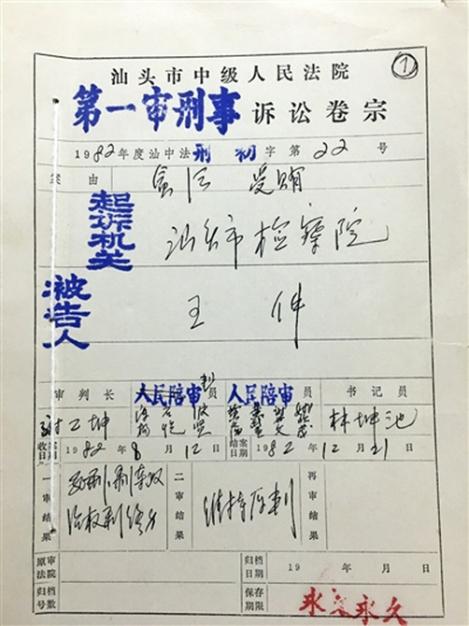 ①
汕头市中级人民法院
第一审刑事诉讼卷宗
1982年度汕中法刑初字第22号
案由 贪污 受贿
起诉机关 汕头市检察院
被告人 王仲
审判长 人民陪审员 人民陪审员 书记员
林坤池
收案日期 1982年8月12日 结案日期 1982年12月21日
一审结果 死刑,剥夺政治权利终身
二审结果 维持原判
再审结果
原审法院 归档日期 19 年 月 日
归档号数 保存期限 永久